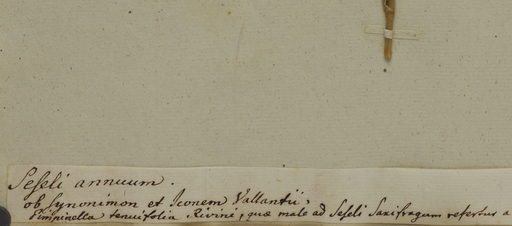 Seseli annuum.
ob synonimon et Iconem Vallantii,
Pimpinella tenuifolia Rivini, quæ male ad Seseli Saxifragum refertur a